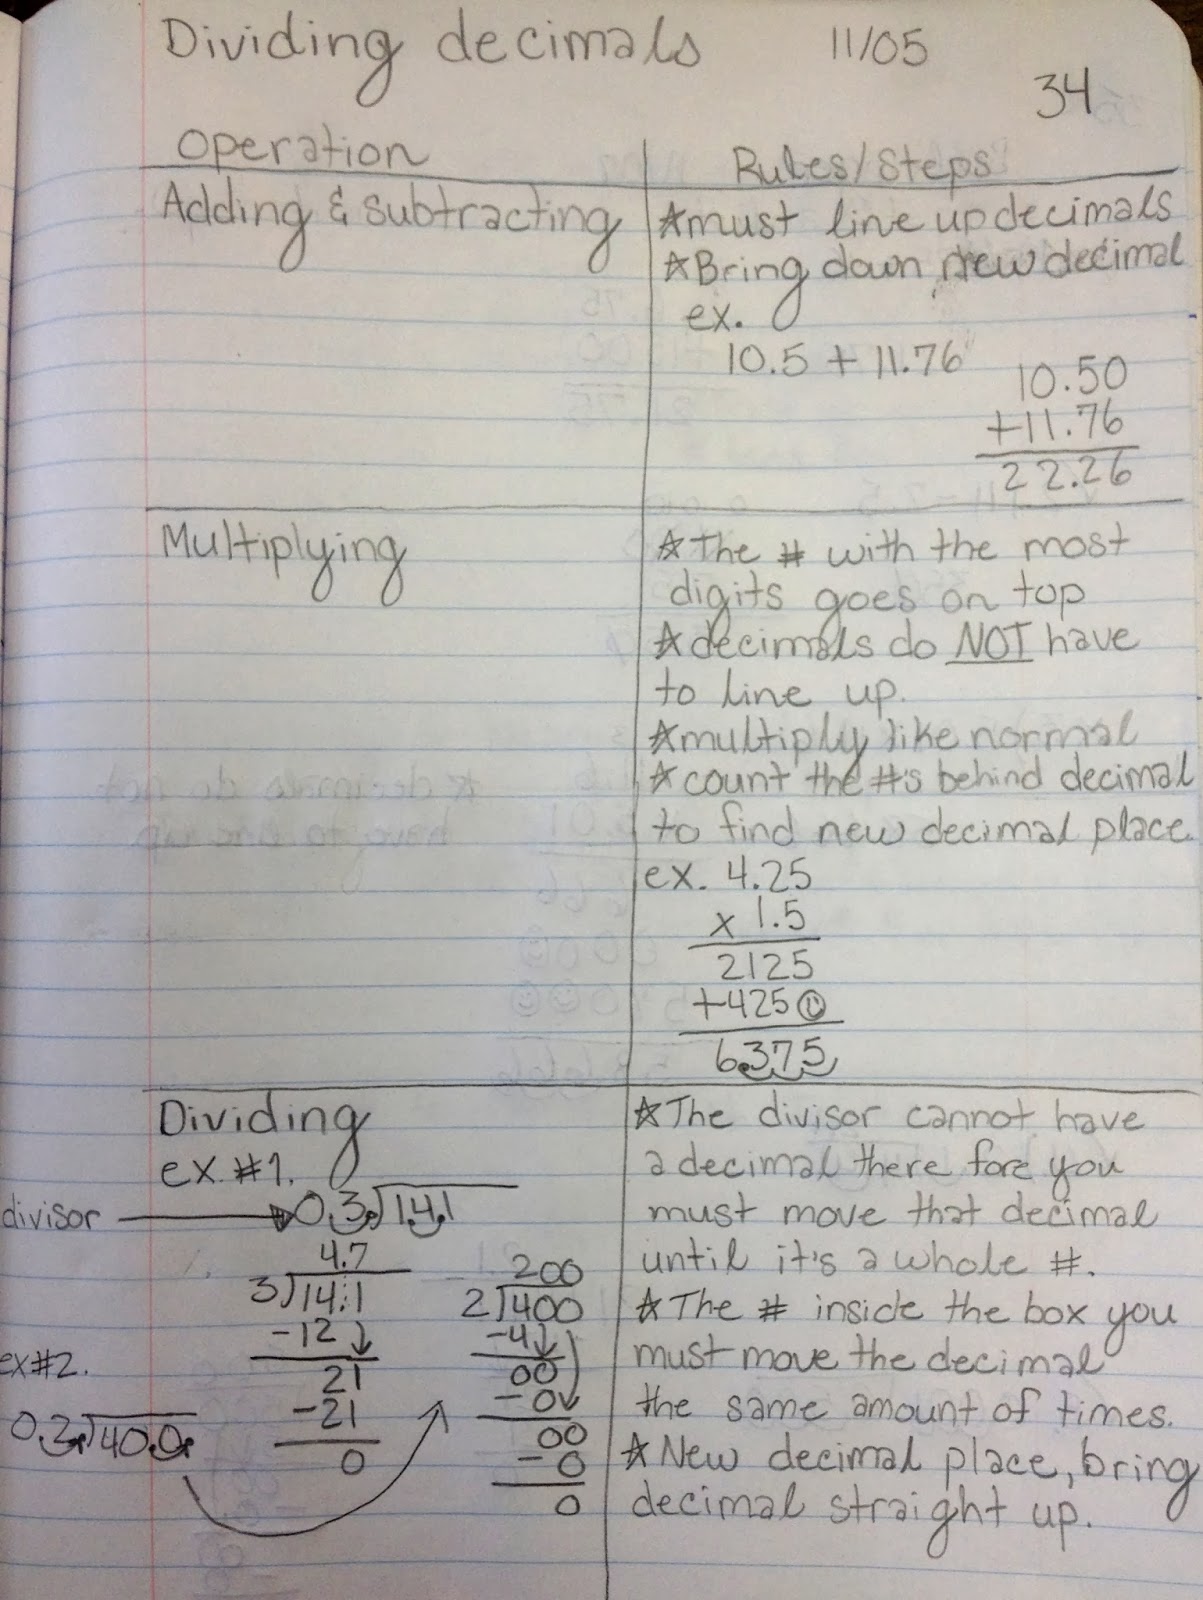 Dividing decimals 11/05
34
Operation
Rules/Steps
Adding & Subtracting
☆must line up decimals
☆Bring down new decimal
ex.
10.5 + 11.76
10.50
+11.76
22.26
Multiplying
☆The # with the most
digits goes on top
☆decimals do NOT have
to line up.
☆multiply like normal
☆count the #'s behind decimal
to find new decimal place.
ex. 4.25
x 1.5
2125
+425☺
6.375
Dividing
ex. #1.
divisor → 0.3.)14.1
4.7
3)14.1
-12↓
21
-21
0
ex#2.
0.2.)40.0.
200
2)400
-4↓
00
-0↓
00
-0
0
☆The divisor cannot have
a decimal there fore you
must move that decimal
until it's a whole #.
☆The # inside the box you
must move the decimal
the same amount of times.
☆New decimal place, bring
decimal straight up.